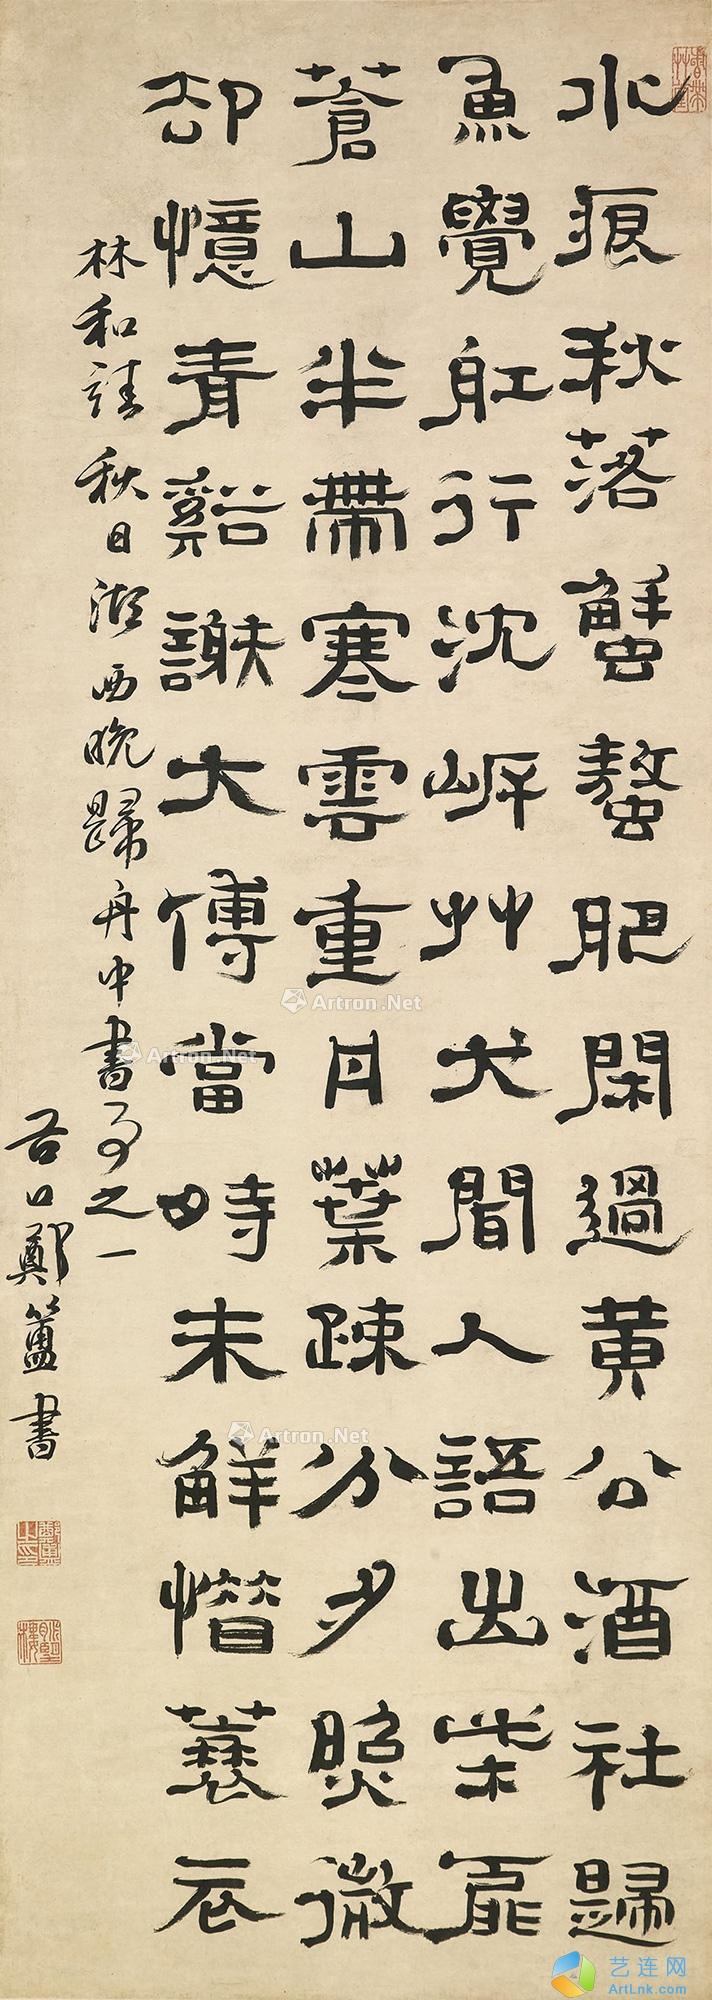 水痕秋落蟹螯肥閑過黃公酒社歸
魚覺舡行沈岸艸犬聞人語出柴扉
蒼山半帶寒雲重丹葉疎分夕照微
却憶青谿謝大傅當時未解惜蓑衣
林和靖秋日湖西晚歸舟中書事之一
谷口鄭簠書
鄭簠之印
Artron.Net
Artron.Net
Artron.Net
艺连网
ArtLnk.com